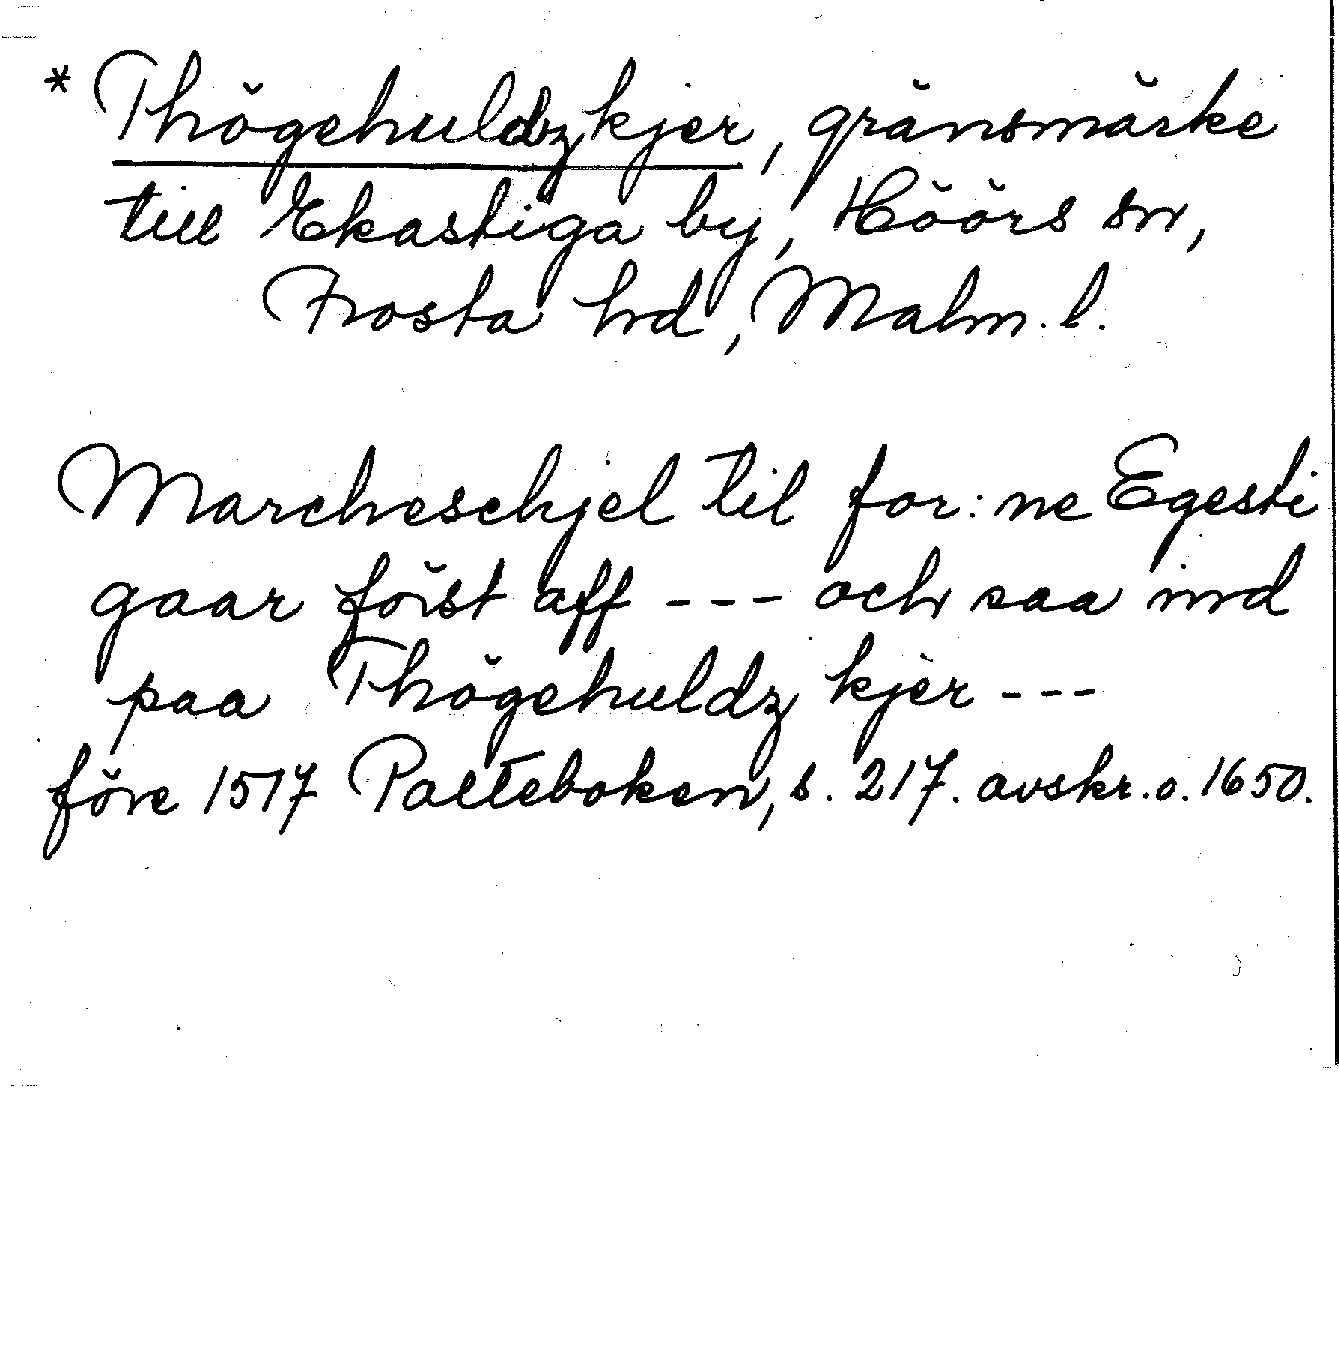 * Thögehuldzkjer, gränsmärke
till Ekastiga by, Höörs sn,
Frosta hd, Malm. l.
Marcheschjel til for: ne Egesti
gaar föist aff --- och saa ind
paa Thögehuldz kjer ---
före 1517 Palteboken, s. 217. avskr. o. 1650.